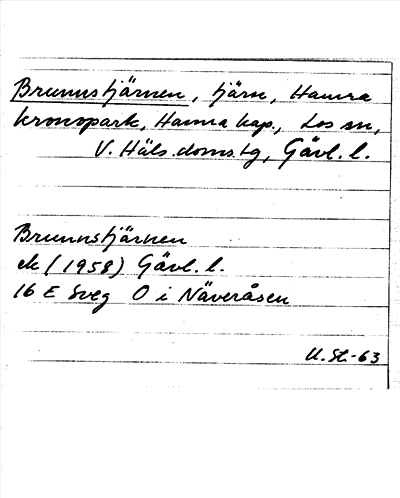 Brunnstjärnen, tjärn, Hamra
kronopark, Hamra kap., Los sn,
V. Häls. doms. tg, Gävl. l.
Brunnstjärnen
ek (1958) Gävl. l.
16 E Sveg O i Näveråsen
U. St. -63